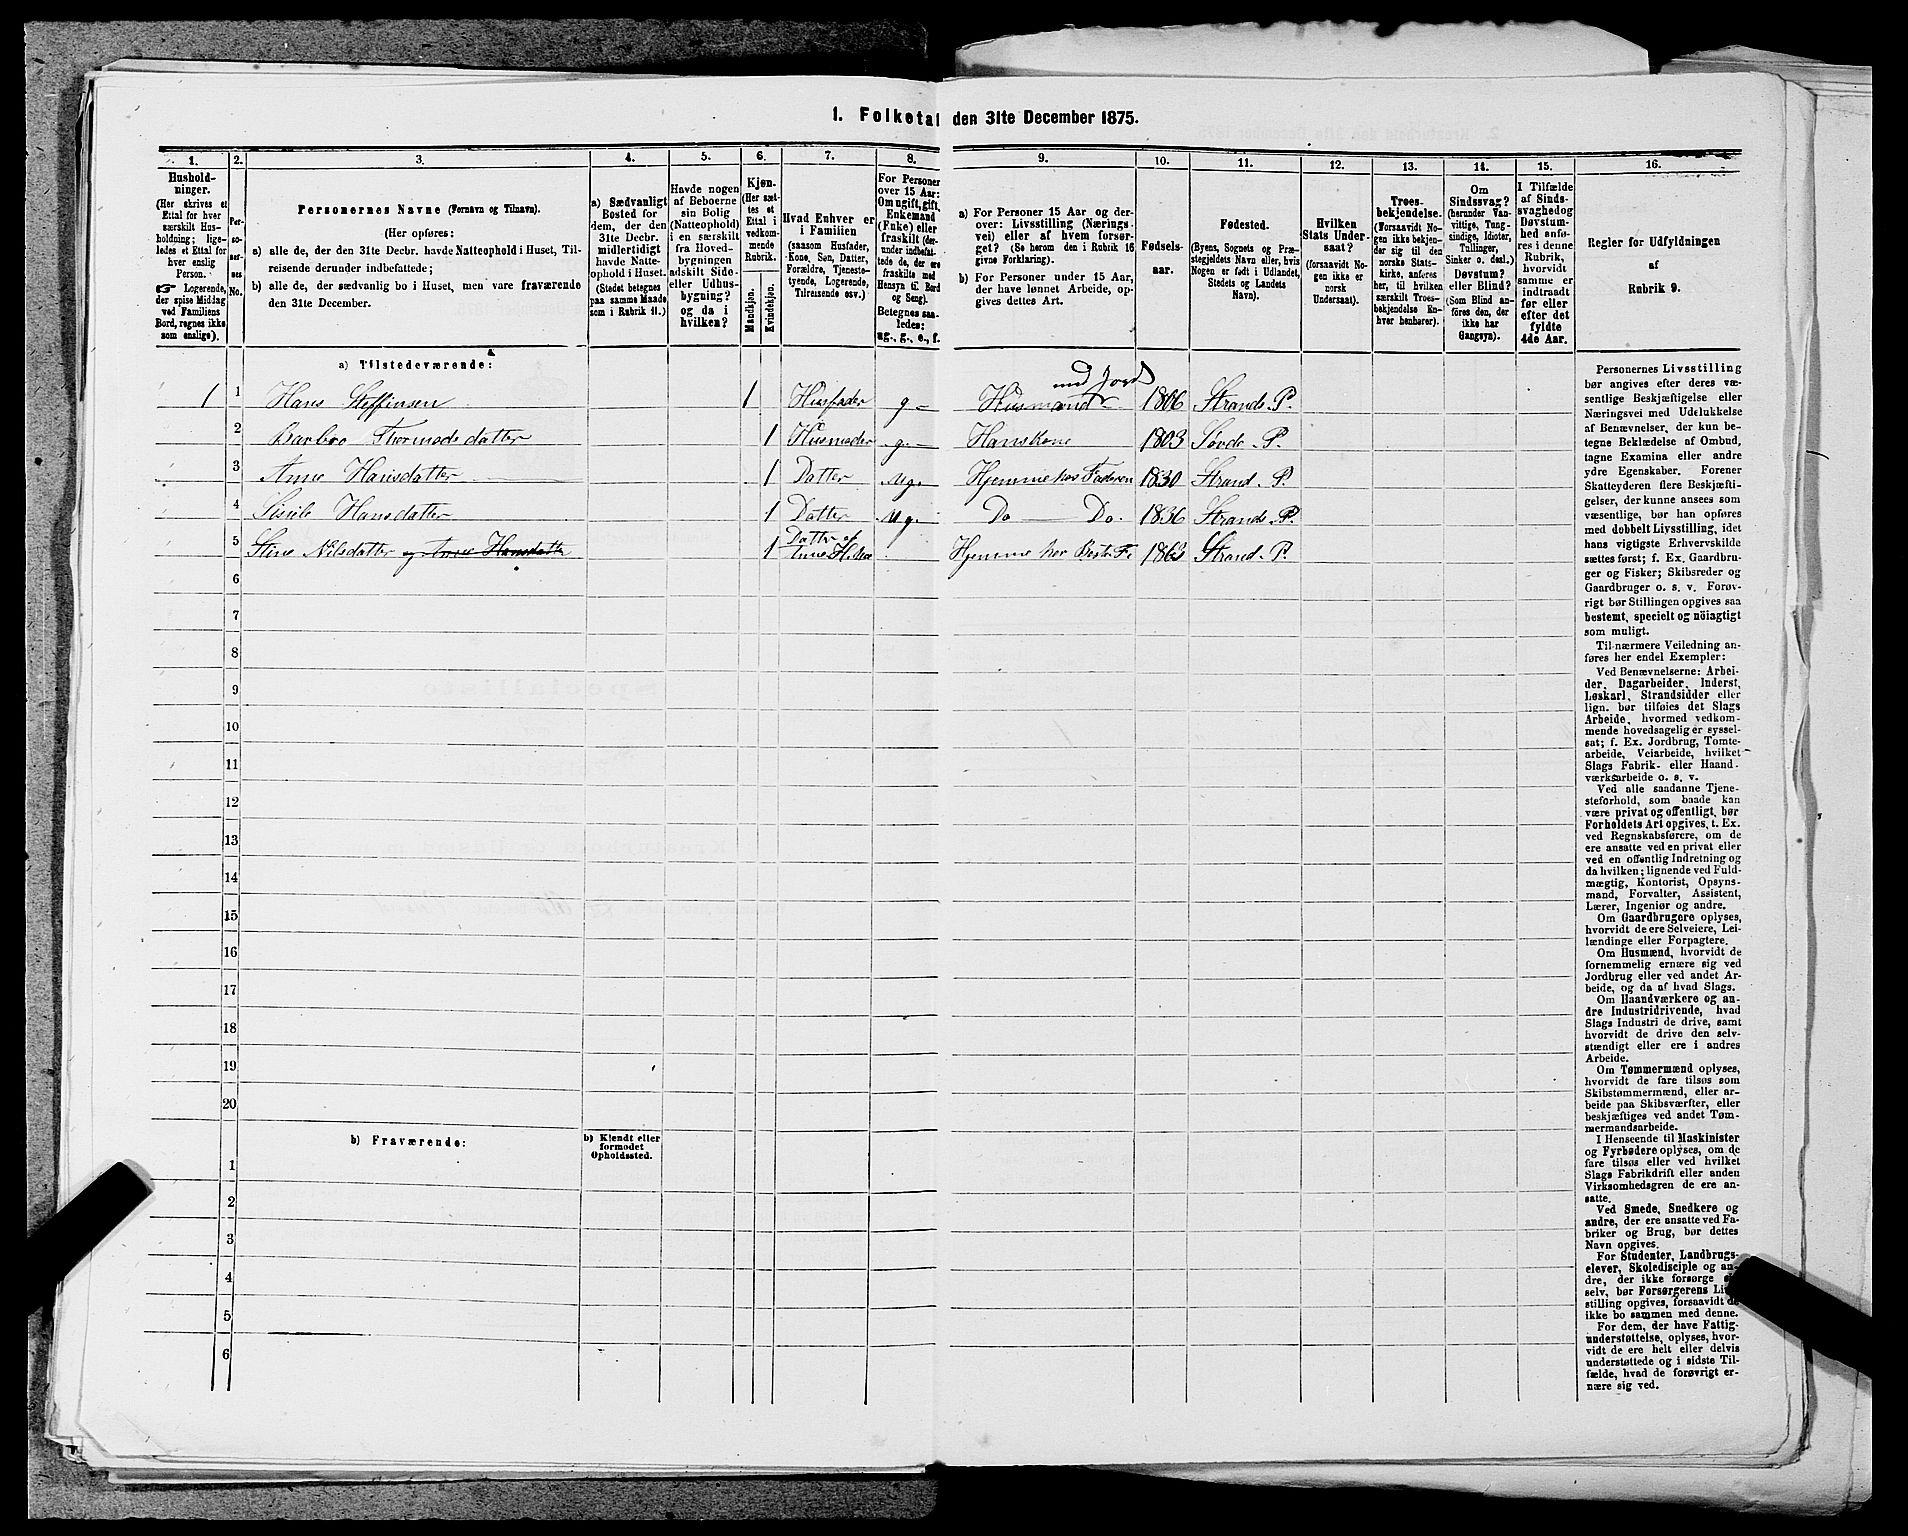 1. Folketal den 31te December 1875.
1. 2. 3. 4. 5. 6. 7. 8. 9. 10. 11. 12. 13. 14. 15. 16.
Hushold-
ninger.
(Her skrives et
Ettal for hver
særskilt Hus-
holdning; lige-
ledes et Ettal for
hver enslig
Person.
☞ Logerende,
der spise Middag
ved Familiens
Bord, regnes ikke
som enslige).
Per-
so-
ner-
nes
No.
Personernes Navne (Fornavn og Tilnavn).
(Her opføres:
a) alle de, der den 31te Decbr. havde Natteophold i Huset, Til-
reisende derunder indbefattede;
b) alle de, der sædvanlig bo i Huset, men vare fraværende
den 31te December.
a) Sædvanligt
Bosted for
dem, der den
31te Decbr.
midlertidigt
havde Natte-
ophold i Huset.
(Stedet betegnes
paa samme Maade
som i Rubrik 11.)
Havde nogen
af Beboerne
sin Bolig
(Natteophold)
i en særskilt
fra Hoved-
bygningen
adskilt Side-
eller Udhus-
bygning?
og da i
hvilken?
Kjøn.
(Her sæt-
tes et
Ettal i
vedkom-
mende
Rubrik.
Mandkjøn.
Kvindekjøn.
Hvad Enhver er
i Familien
(saasom Husfader,
Kone, Søn, Datter,
Forældre, Tjeneste-
tyende, Logerende,
Tilreisende osv.)
For Personer
over 15 Aar:
Om ugift, gift,
Enkemand
(Enke) eller
fraskilt (der-
under indbefat-
tede de, der ere
fraskilte med
Hensyn til Bord
og Seng).
Betegnes saa-
ledes:
ug., g., e., f.
a) For Personer 15 Aar og der-
over: Livsstilling (Nærings-
vei) eller af hvem forsør-
get? (Se herom den i Rubrik 16
givne Forklaring).
b) For Personer under 15 Aar,
der have lønnet Arbeide, op-
gives dettes Art.
Fødsels-
aar.
Fødested.
(Byens, Sognets og Præ-
stegjeldets Navn eller, hvis
Nogen er født i Udlandet,
Stedets og Landets
Navn).
Hvilken
Stats Under-
saat?
(forsaavidt No-
gen ikke er
norsk
Undersaat).
Troes-
bekjendelse.
(Forsaavidt No-
gen ikke bekjen-
der sig til den
norske Stats-
kirke, anføres
her, til hvilken
særskilt Troes-
bekjendelse En-
hver henhører).
Om
Sindssvag?
(herunder Van-
vittige, Tung-
sindige, Idioter,
Tullinger,
Sinker o. desl.)
Døvstum?
eller Blind?
(Som Blind an-
føres den, der
ikke har
Gangsyn).
I Tilfælde
af Sinds-
svaghed og
Døvstum-
hed anfø-
res i denne
Rubrik,
hvorvidt
samme er
indtraadt
før eller
efter det
fyldte
4de Aar.
Regler for Udfyldningen
af
Rubrik 9.
a) Tilstedeværende:
med Jord
1 1 Hans Steffensen 1 Husfader g Husmand 1806 Strands P.
2 Barbro Thormodsdatter 1 Husmoder g. Hans Kone 1803 Søvde P.
3 Anne Hansdatter 1 Datter ug. Hjemme hos Faderen 1830 Strand P.
4 Sisile Hansdatter 1 Datter ug. Do Do. 1836 Strands P.
5 Stine Nilsdatter og Anne Hansdatter 1 Datter af Anne Hjemme hos 186 Strand P.
6
7
8
9
10
11
12
13
14
15
16
17
18
19
20
b) Fraværende:
b) Kjendt eller
formodet
Opholdssted.
1
2
3
4
5
6
Personernes Livsstilling
bør angives efter deres væ-
sentlige Beskjæftigelse eller
Næringsvei med Udelukkelse
af Benævnelser, der kun be-
tegne Beklædelse af Ombud,
tagne Examina eller andre
ydre Egenskaber. Forener
Skatteyderen flere Beskjæfti-
gelser, der kunne ansees som
væsentlige, bør han opføres
med dobbelt Livsstilling, idet
hans vigtigste Erhvervskilde
sættes først; f. Ex. Gaardbru-
ger og Fisker; Skibsreder og
Gaardbruger o. s. v. Forøv-
rigt bør Stillingen opgives saa
bestemt, specielt og nöiagtigt
som muligt.
Til nærmere Veiledning an-
føres her endel Exempler:
Ved Benævnelserne: Arbei-
der, Dagarbeider, Inderst,
Løskarl, Strandsidder eller
lign. bør tilføies det Slags
Arbeide, hvormed vedkom-
mende hovedsagelig er syssel-
sat; f. Ex. Jordbrug, Tomte-
arbeide, Veiarbeide, hvilket
Slags Fabrik- eller Haand-
værksarbeide o. s. v.
Ved alle saadanne Tjene-
steforhold, som baade kan
være privat og offentligt, bør
Forholdets Art opgives, t. Ex.
ved Regnskabsførere, om de
ere ansatte ved en privat eller
ved en offentlig Indretning og
da hvilken; lignende ved Fuld-
mægtig, Kontorist, Opsyns-
mand, Forvalter, Assistent,
Lærer, Ingeniør og andre.
Om Gaardbrugere oplyses,
hvorvidt de ere Selveiere, Lei-
lændinge eller Forpagtere.
Om Husmænd, hvorvidt de
fornemmelig ernære sig ved
Jordbrug eller ved andet Ar-
beide, og da af hvad Slags.
Om Haandværkere og an-
dre Industridrivende, hvad
Slags Industri de drive, samt
hvorvidt de drive den selv-
stændigt eller ere i andres
Arbeide.
Om Tømmermænd oplyses,
hvorvidt de fare tilsøs som
Skibstømmermænd, eller ar-
beide paa Skibsværfter, eller
beskjæftiges ved andet Tøm-
mermandsarbeide.
I Henseende til Maskinister
og Fyrbødere oplyses, om de
fare tilsøs eller ved hvilket
Slags Fabrikdrift eller anden
Virksomhedsgren de ere an-
satte.
Ved Smede, Snedkere og
andre, der ere ansatte ved Fa-
briker og Brug, bør dettes
Navn opgives.
For Studenter, Landbrugs-
elever, Skoledisciple og an-
dre, der ikke forsørge sig
selv, bør Forsørgerens Livs-
stilling opgives, forsaavidt de
ikke bo sammen med denne.
For dem, der have Fattig-
understøttelse, oplyses, hvor-
vidt de ere helt eller delvis
understøttede og i sidste Til-
fælde, hvad de forøvrigt er-
nære sig ved.